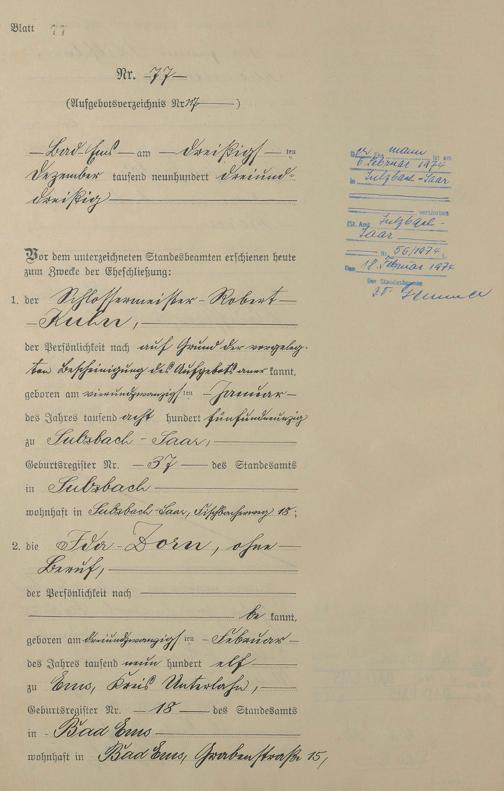 Blatt 77
Nr. 77
(Aufgebotsverzeichnis Nr. 77)
Bad Ems am dreißigsten
Dezember tausend neunhundert dreiund-
dreißig
Vor dem unterzeichneten Standesbeamten erschienen heute
zum Zwecke der Eheschließung:
1. der Schlossermeister Robert
Kuhn,
der Persönlichkeit nach auf Grund der vorgeleg-
ten Bescheinigung des Aufgebots anerkannt,
geboren am vierundzwanzigsten Januar
des Jahres tausend acht hundert fünfundneunzig
zu Sulzbach-Saar,
Geburtsregister Nr. 37 des Standesamts
in Sulzbach
wohnhaft in Sulzbach-Saar, Fischbacherweg 18;
2. die Ida Dorn, ohne
Beruf,
der Persönlichkeit nach
bekannt,
geboren am dreiundzwanzigsten Februar
des Jahres tausend neun hundert elf
zu Ems, Kreis Unterlahn,
Geburtsregister Nr. 18 des Standesamts
in Bad Ems
wohnhaft in Bad Ems, Grabenstraße 15,
mann ist am
Februar 1974
in Sulzbach-Saar
verstorben
(St. Amt Sulzbach-
Saar
Nr. 56/1974)
Den 18. Februar 1974
Der Standesbeamte